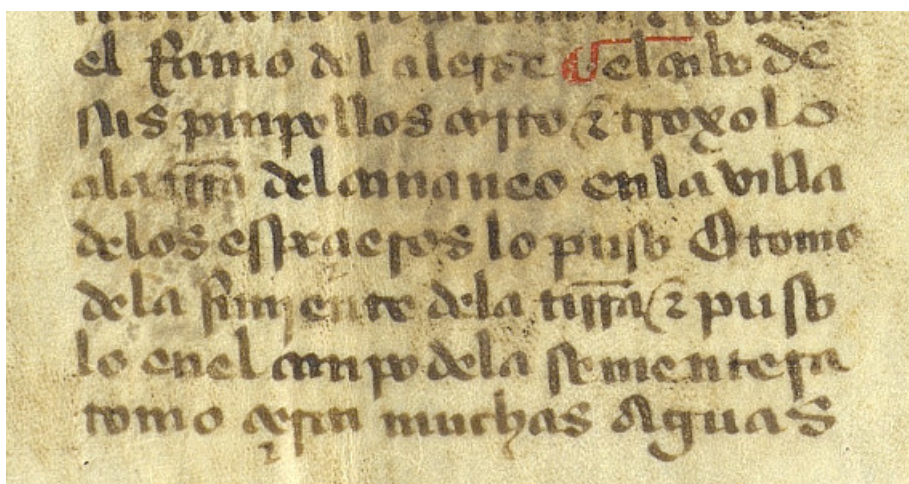 & tomo
el rramo del alerze el cabo de
sus pinpollos corto & troxolo
ala trra del cananeo enla villa
delos espeçieros lo puso E tomo
dela simiente dela trra & puso
lo enel canpo dela sementera
tomo çerca muchas Aguas